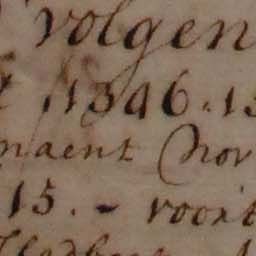 volgen
1346. 13
maent Nov
15. - voort